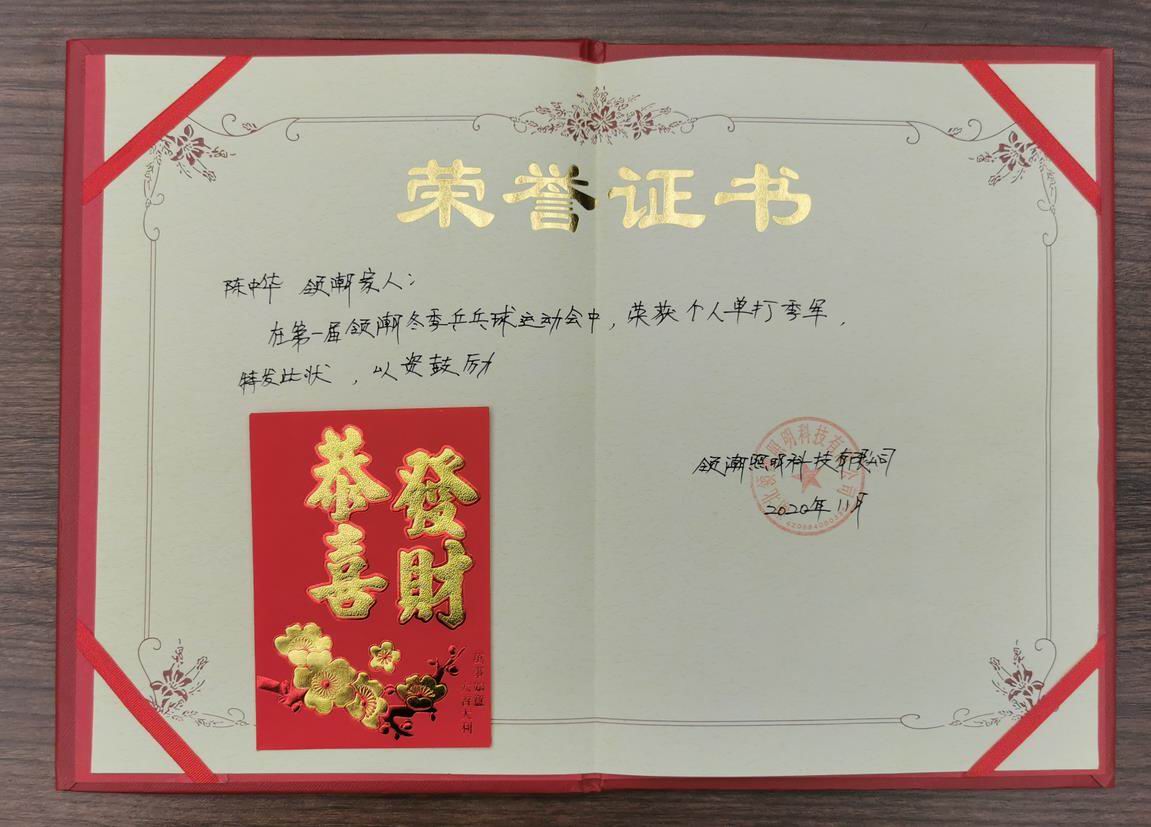 荣誉证书
陈中华 领潮家人：
在第一届领潮冬季乒乓球运动会中，荣获个人单打季军，
特发此状，以资鼓励
领潮照明科技有限公司
2020年11月
恭喜
發財
萬事如意
大吉大利